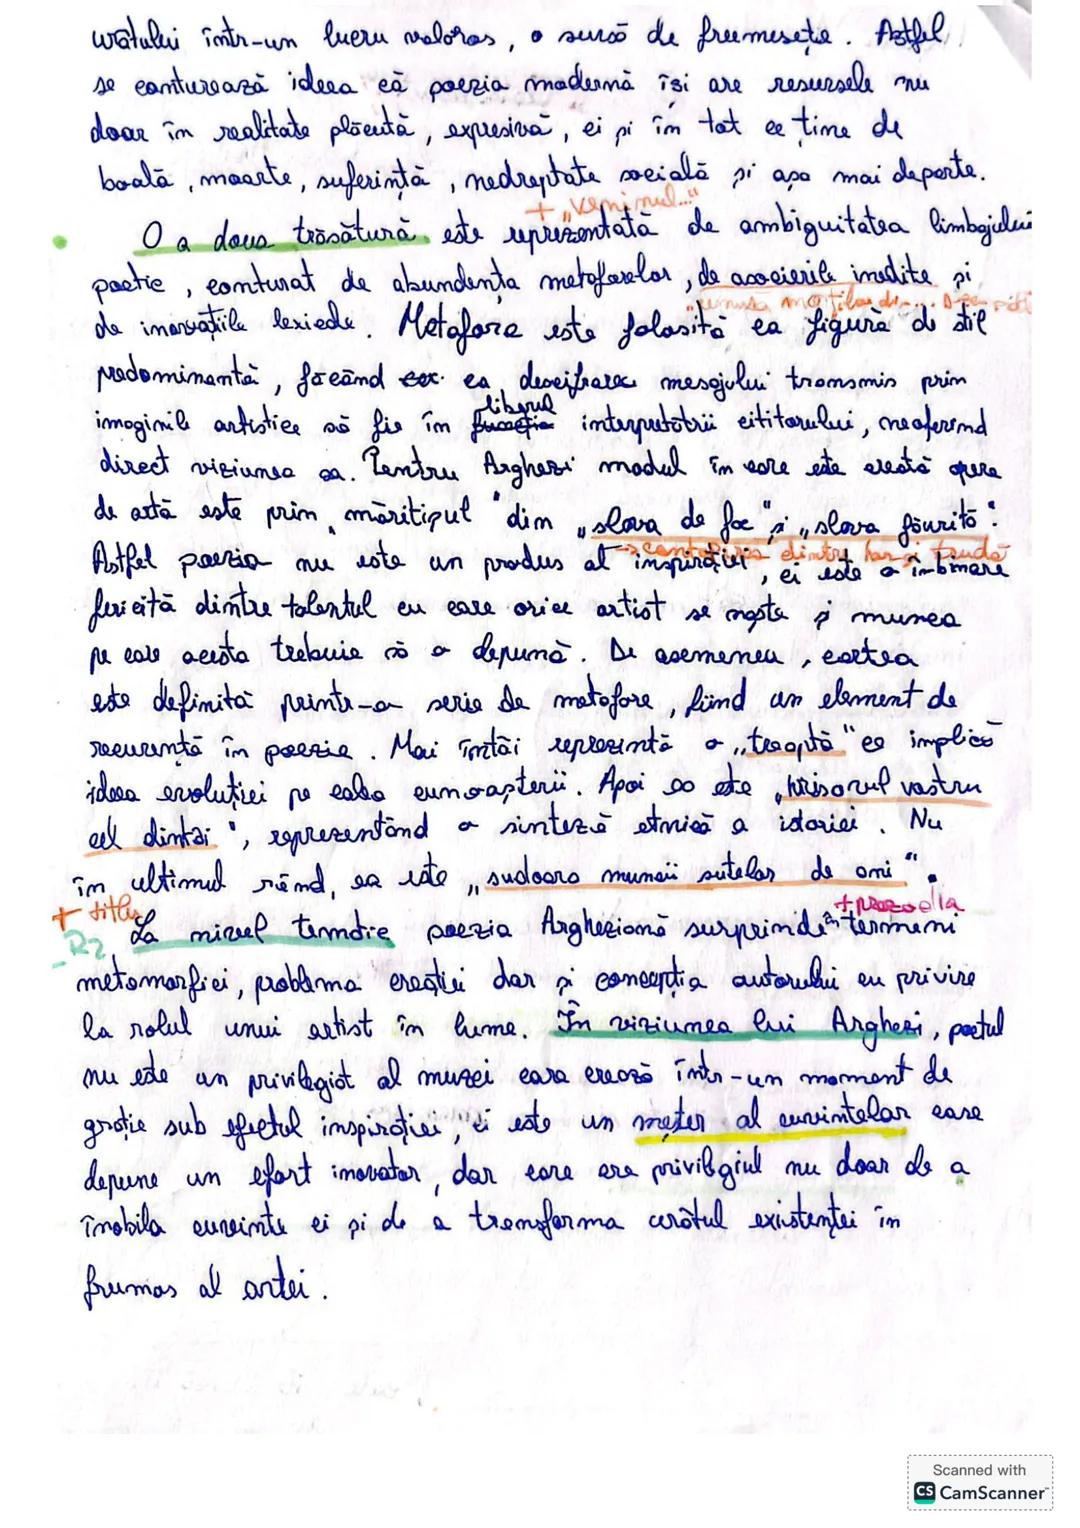 urâtului într-un lucru valoros, o sursă de frumusețe. Astfel,
se conturează ideea că poezia modernă își are resursele nu
doar în realitate plăcută, expresivă, ci și în tot ce ține de
boală, moarte, suferință, nedreptate socială și așa mai departe.
+ „veninul..."
O a doua trăsătură este reprezentată de ambiguitatea limbajului
poetic, conturat de abundența metaforelor, de asocierile inedite și
„cenușa morților din...
de inovațiile lexicale. Metafora este folosită ca figură de stil
predominantă, făcând ca descifrarea mesajului transmis prin
liberul
imaginile artistice să fie în funcția interpretării cititorului, neoferind
direct viziunea sa. Pentru Arghezi modul în care este creată opera
de artă este prin măritișul "din „slova de foc" și „slova făurită".
dintre har și trudă
Astfel poezia nu este un produs al inspirației, ci este o îmbinare
fericită dintre talentul cu care orice artist se naște și munca
pe care acesta trebuie să o depună. De asemenea, cartea
este definită printr-o serie de metafore, fiind un element de
recurență în poezie. Mai întâi reprezintă o „treaptă" ce implică
ideea evoluției pe calea cunoașterii. Apoi ea este „hrisovul vostru
cel dintâi", reprezentând o sinteză etnică a istoriei. Nu
în ultimul rând, ea este „sudoarea muncii sutelor de ani".
+ titlu
+ prozodia
R2
La nivel tematic poezia Argheziană surprinde termeni
metamorfiei, problema creației dar și concepția autorului cu privire
la rolul unui artist în lume. În viziunea lui Arghezi, poetul
nu este un privilegiat al muzei care crează într-un moment de
grație sub efectul inspirației, ci este un meșter al cuvintelor care
depune un efort inovator, dar care are privilegiul nu doar de a
înobila cuvinte ci și de a transforma urâtul existenței în
frumos al artei.
Scanned with
CS CamScanner